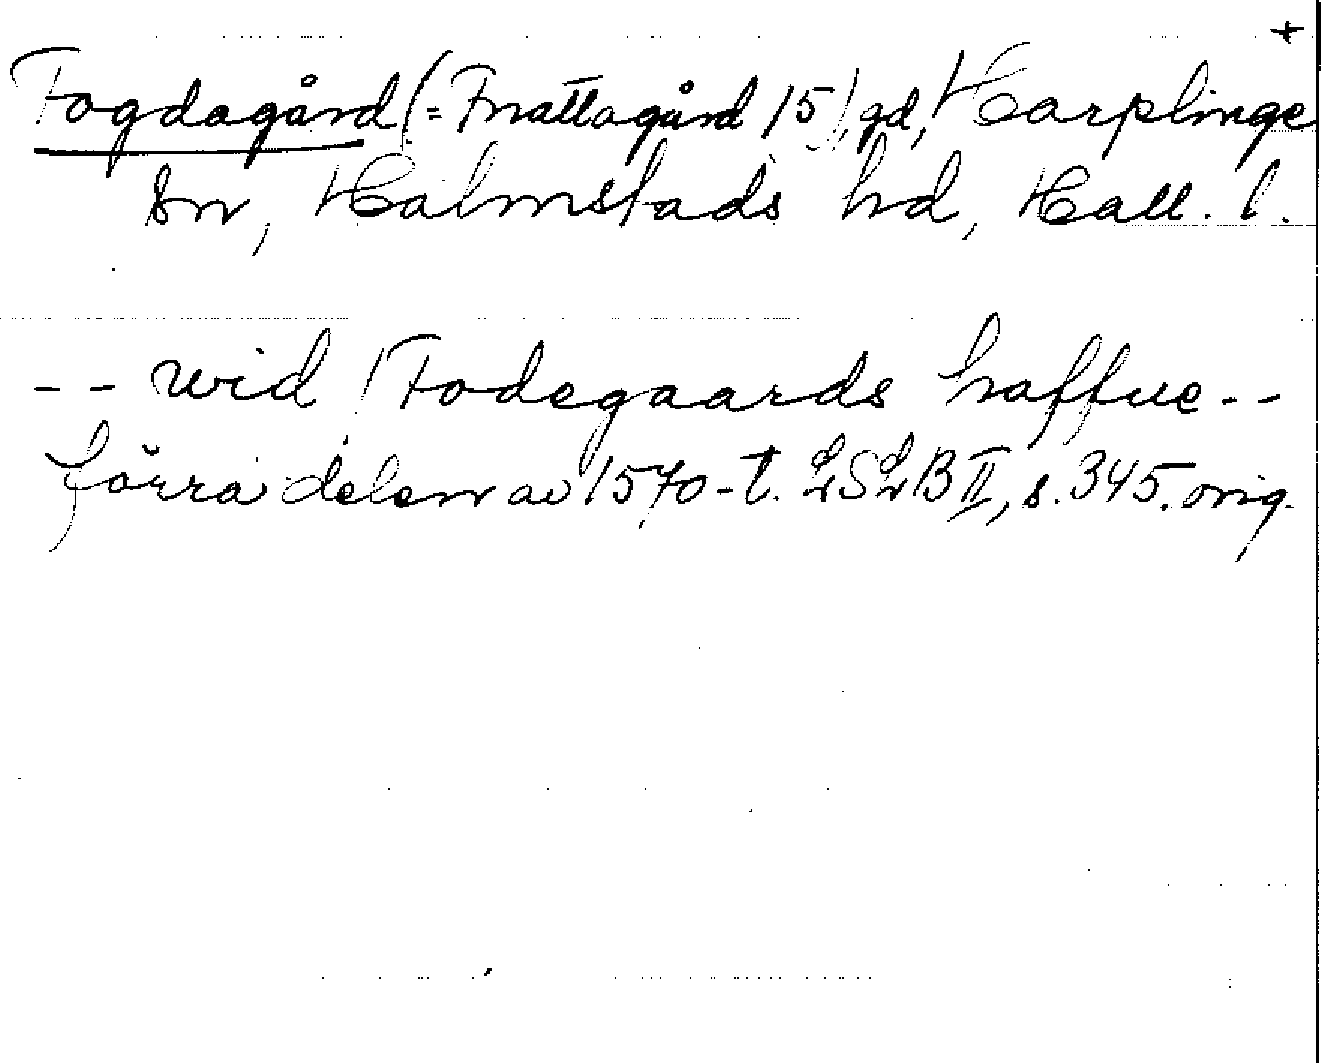 +
Fogdagård (= Frattagård 15), gd, Harplinge
sn, Halmstads hd, Hall. l.
-- wid Fodegaards haffue --
förra delen av 1570-t. LSLB II, s. 345. orig.